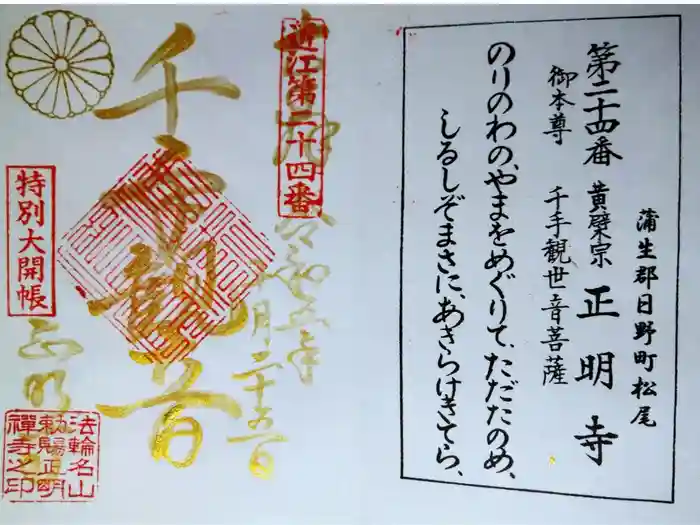 蒲生郡日野町松尾
第二十四番 黄檗宗 正明寺
御本尊 千手観世音菩薩
のりのわの、やまをめぐりて、ただたのめ、
しるしぞまさに、あきらけきてら、
近江第二十四番
奉拝
令和五年
十月二十五日
千手観音
正明寺
特別大開帳
法輪名山
勅賜正明
禪寺之印